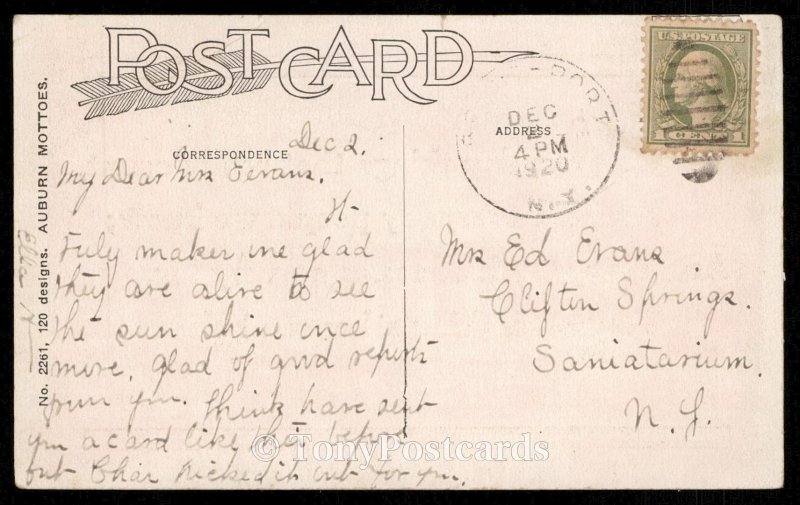 POST CARD
CORRESPONDENCE
ADDRESS
PORT
DEC
4 PM
1920
N.Y.
U.S. POSTAGE
No. 2261, 120 designs. AUBURN MOTTOES.
Dec 2.
My Dear Mrs Eevans.
It
Fuly makes me glad
they are alive to see
the sun shine once
more, glad of good reports
from you. Think have sent
you a card like this before
but Char Picked it out for you.
Mrs Ed Evans
Clifton Springs.
Saniatarium.
N. Y.
© TonyPostcards